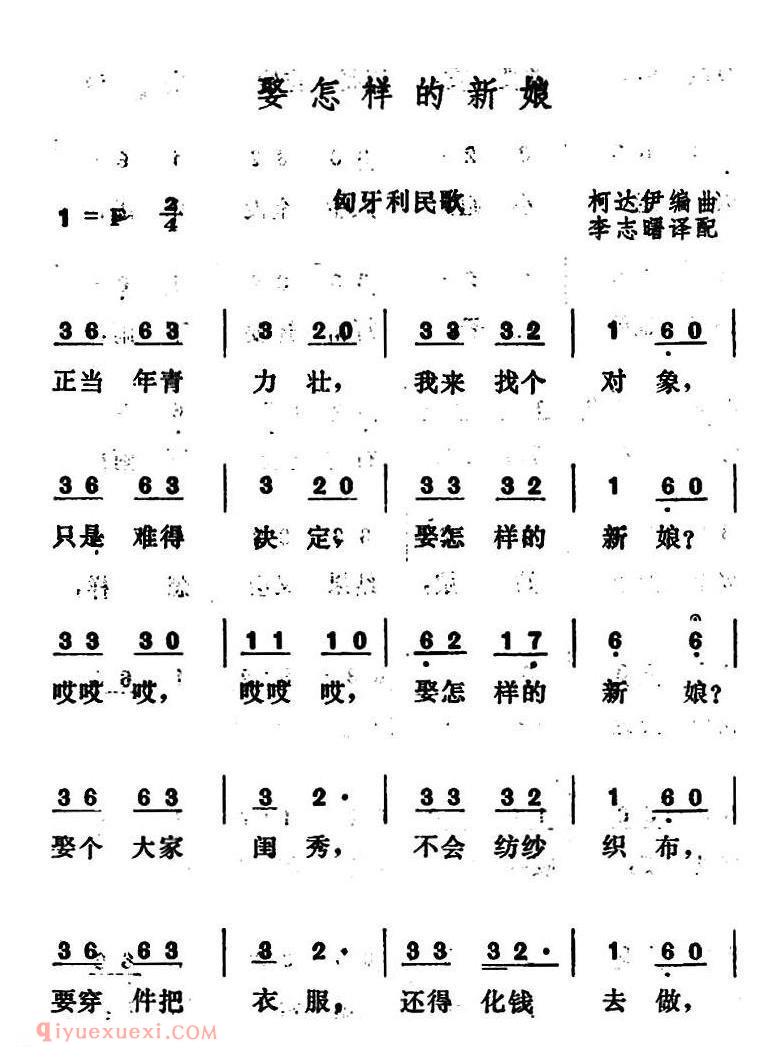 娶怎样的新娘
1=F 2/4 匈牙利民歌 柯达伊编曲
李志曙译配
36 63 | 3 20 | 33 32 | 1 60 |
正当 年青 力 壮, 我来 找个 对 象,
36 63 | 3 20 | 33 32 | 1 60 |
只是 难得 决 定, 娶怎 样的 新 娘?
33 30 | 11 10 | 62 17 | 6 6 |
哎哎 哎, 哎哎 哎, 娶怎 样的 新 娘?
36 63 | 3 2· | 33 32 | 1 60 |
娶个 大家 闺 秀, 不会 纺纱 织 布,
36 63 | 3 2· | 33 32· | 1 60 |
要穿 件把 衣 服, 还得 化钱 去 做,
qiyuexuexi.com